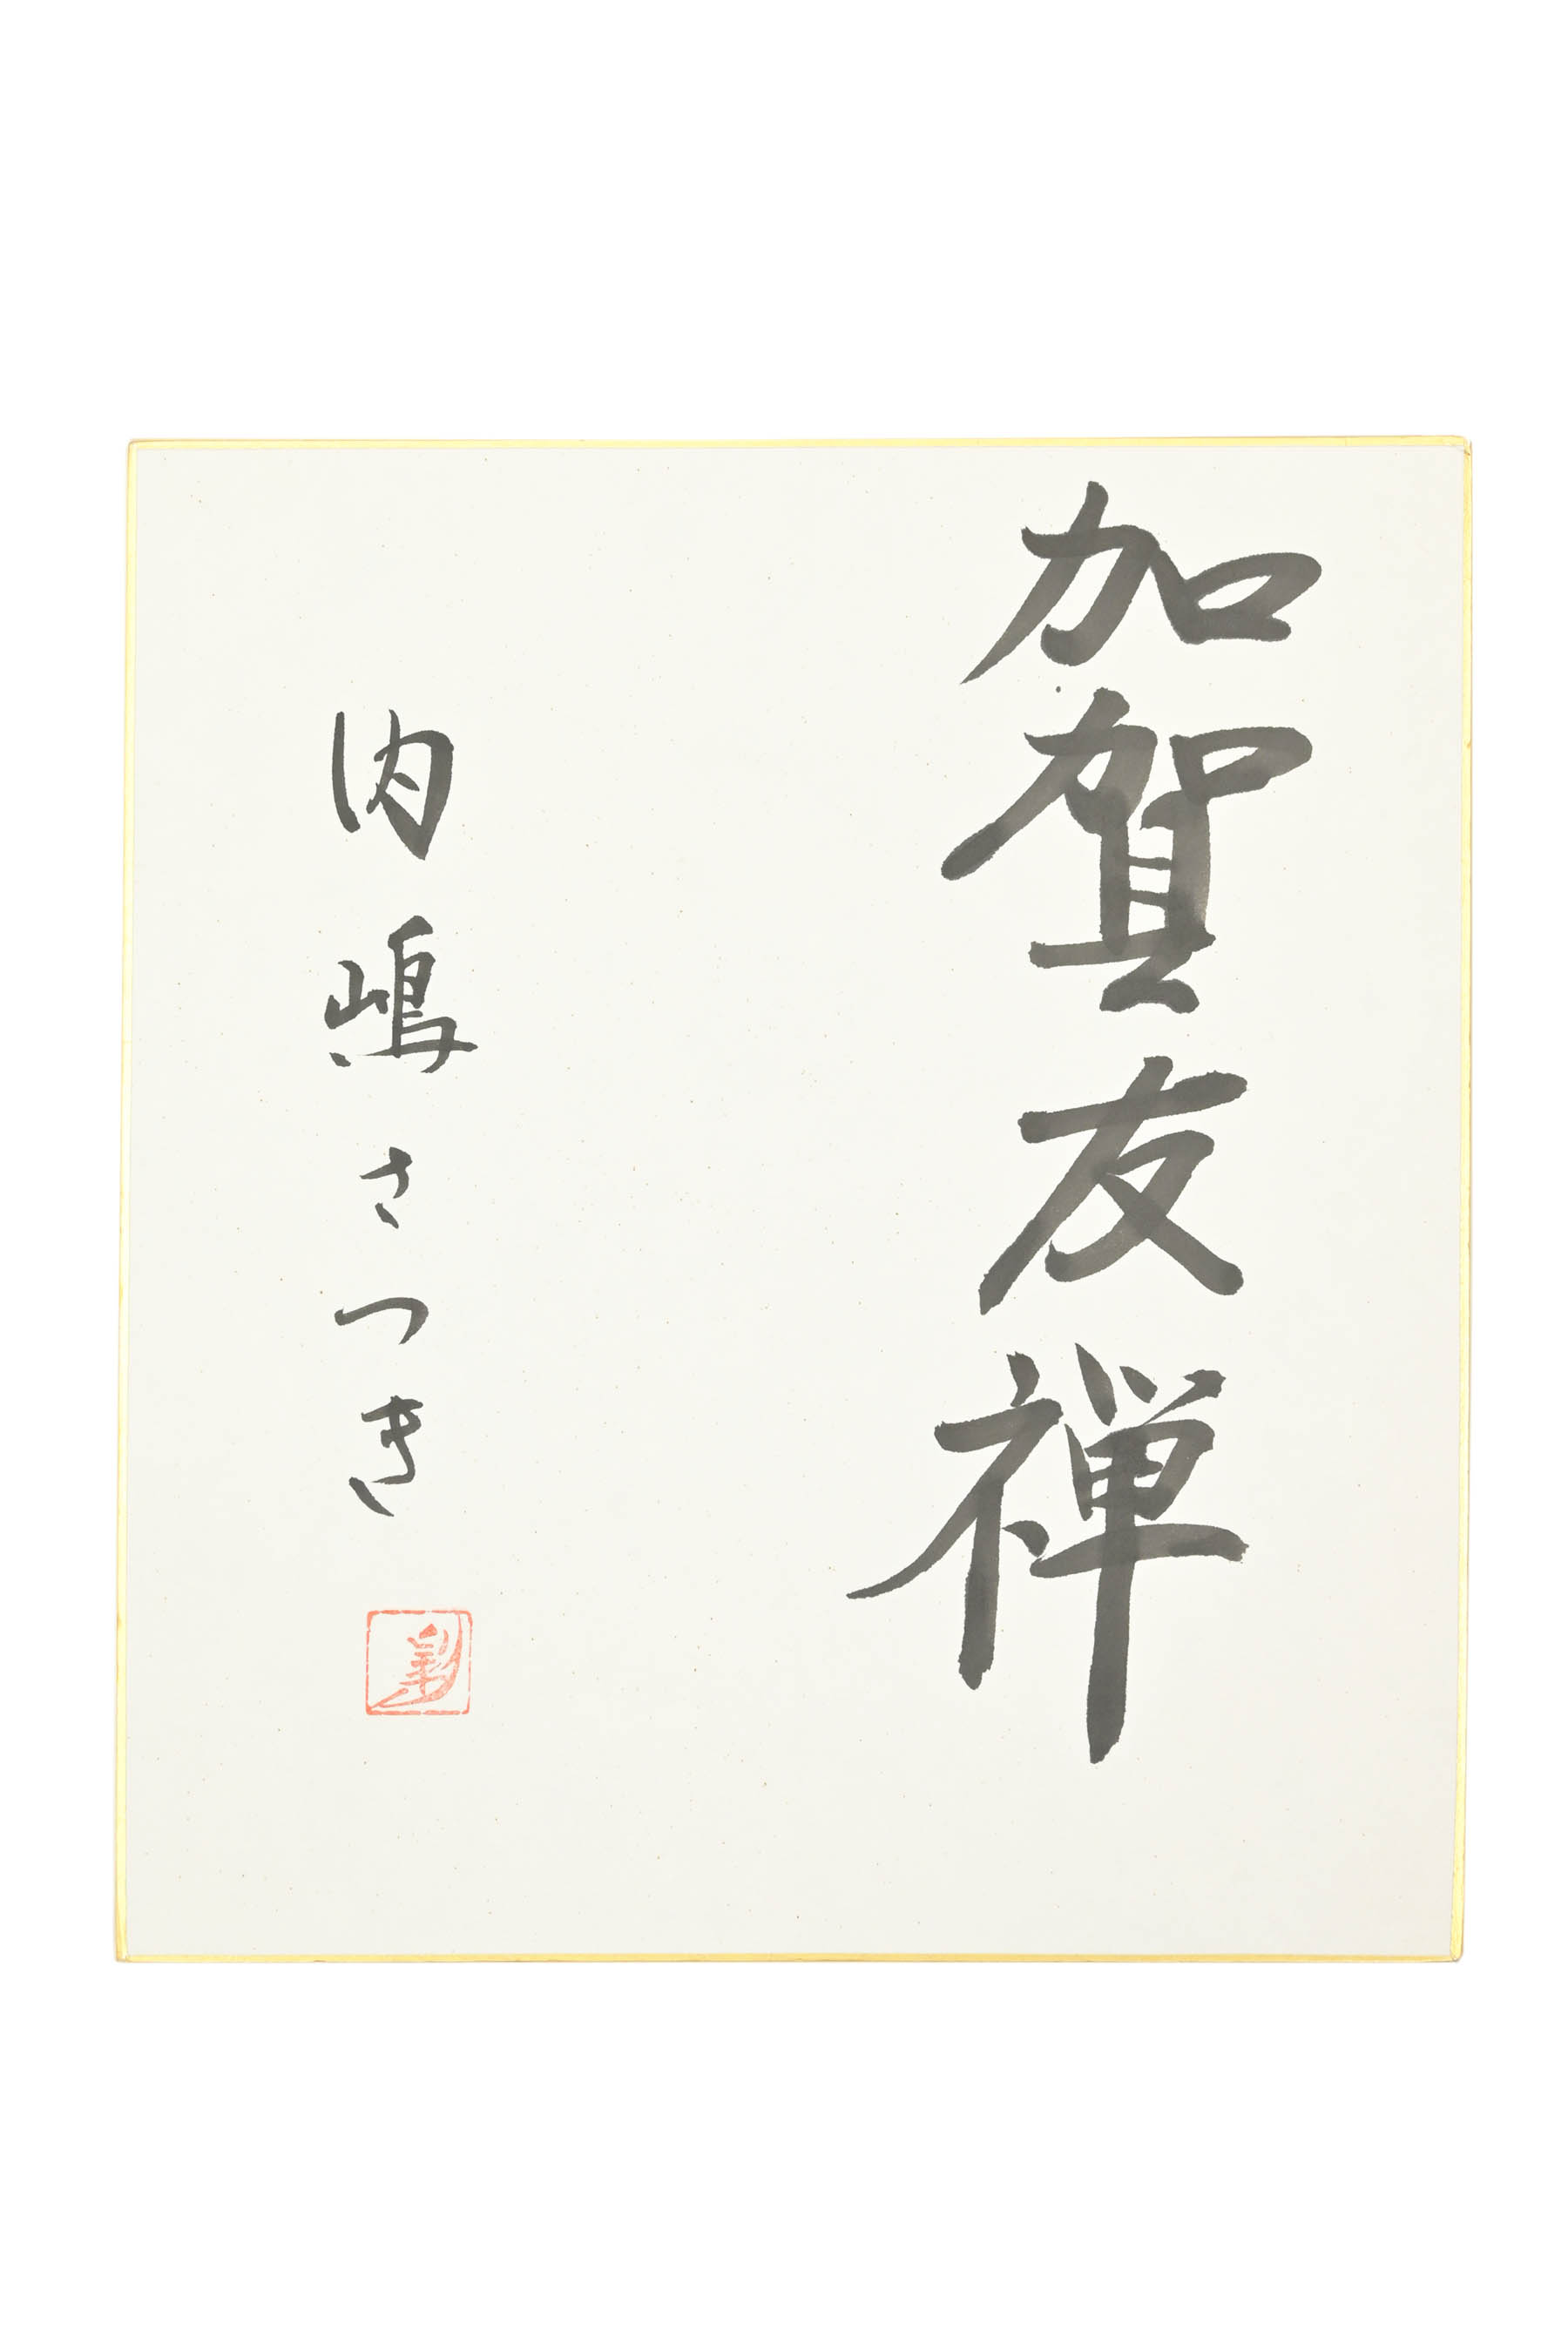 加賀友禅
内嶋さつき